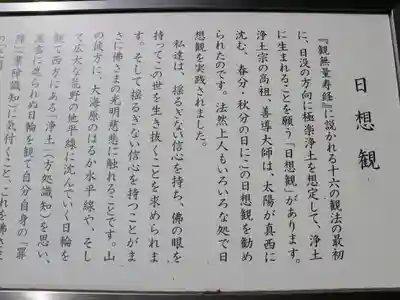 日想観
『観無量寿経』に説かれる十六の観法の最初
に、日没の方向に極楽浄土を想定して、浄土
に生まれることを願う「日想観」があります。
浄土宗の高祖、善導大師は、太陽が真西に
沈む、春分・秋分の日にこの日想観を勧め
られたのです。法然上人もいろいろな処で日
想観を実践されました。
私達は、揺るぎない信心を持ち、佛の眼を
持ってこの世を生き抜くことを求められま
す。そして揺るぎない信心を持つことがま
さに佛さまの光明慈悲に触れることです。山
の彼方に、大海原のはるか水平線や、そし
て広大な荒野の地平線に沈んでいく日輪を
観て西方にある「浄土」(方处識知)を思い、
に遮られぬ日輪を観て自分自身の「罪
障」(業障識知)に気付くこと、これを佛さま